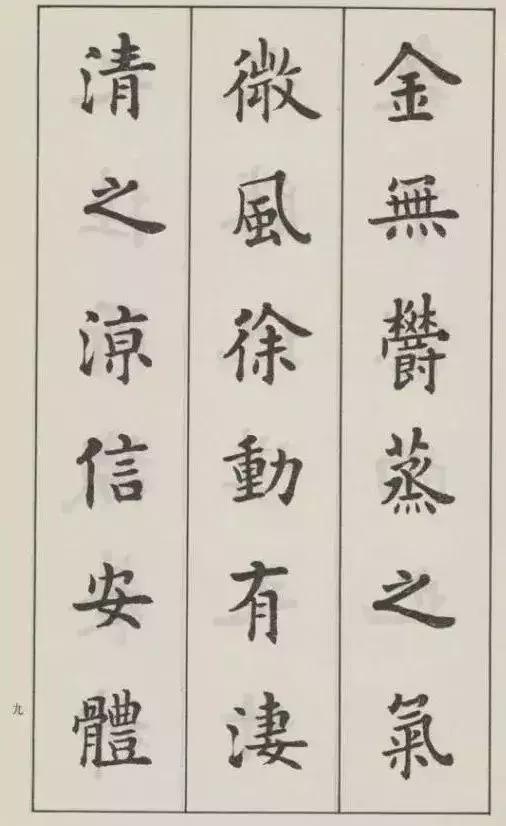 金無欝蒸之氣
微風徐動有淒
清之涼信安體
九